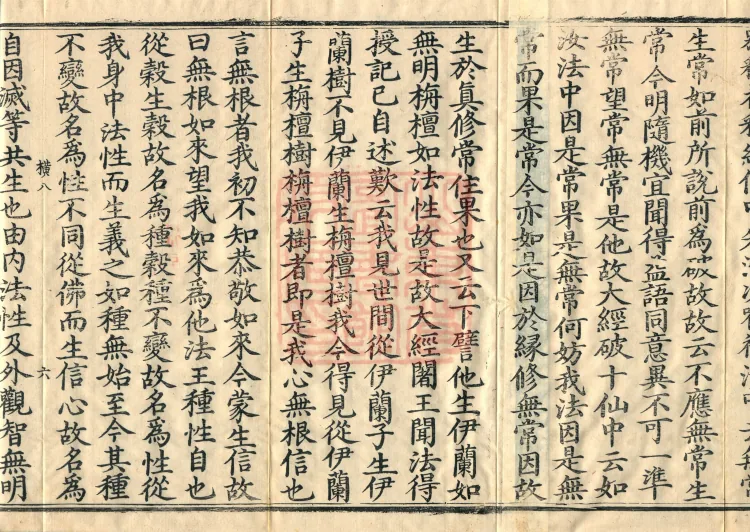 生常如前所說前爲破故故云不應無常生
常今明隨機宜聞得益語同意異不可一準
無常望常無常是他故大經破十仙中云如
汝法中因是常果是無常何妨我法因是無
常而果是常今亦如是因於縁修無常因故
生於眞修常住果也又云下譬他生伊蘭如
無明栴檀如法性故是故大經闍王聞法得
授記已自述歎云我見世間從伊蘭子生伊
蘭樹不見伊蘭生栴檀樹我今得見從伊蘭
子生栴檀樹栴檀樹者即是我心無根信也
言無根者我初不知恭敬如來今蒙生信故
曰無根如來望我如來爲他法王種性自也
從穀生穀故名爲種穀種不變故名爲性從
我身中法性而生義之如種無始至今其種
不變故名爲性不同從佛而生信心故名爲
橫八 六
自因滅等共生也由內法性及外觀智無明